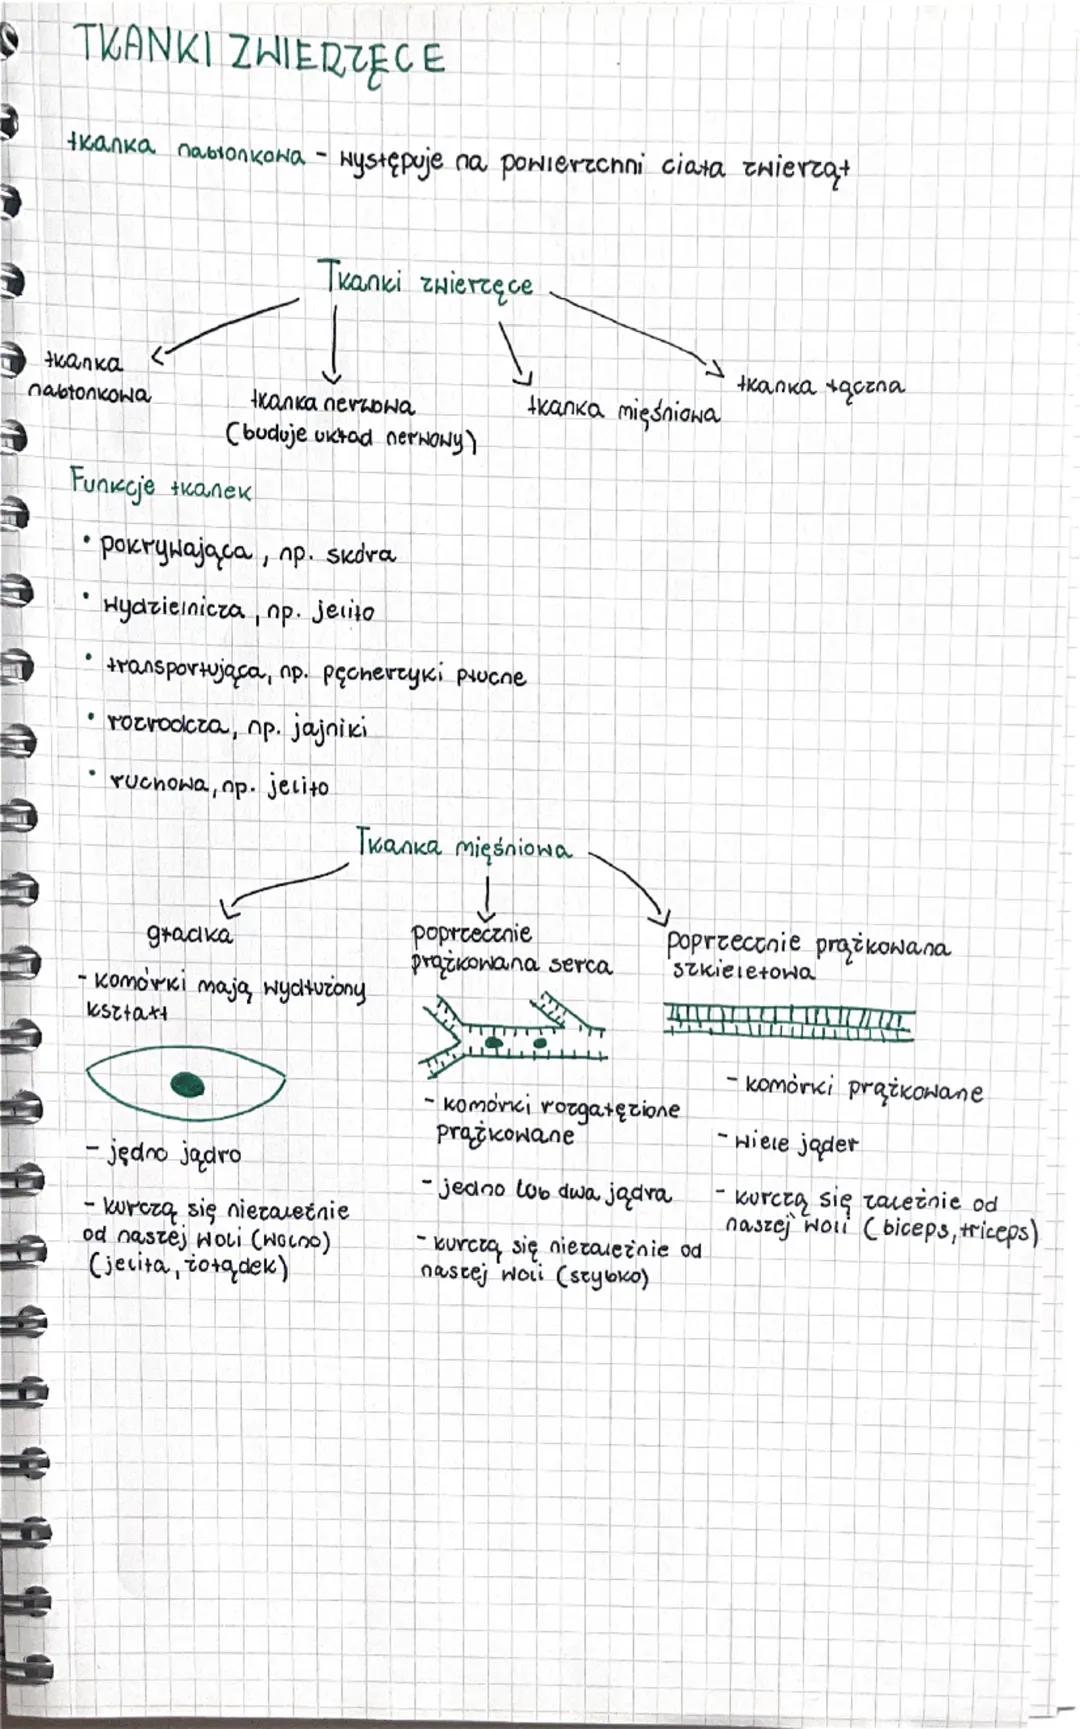 TKANKI ZWIERZĘCE
tkanka nabłonkowa - występuje na powierzchni ciała zwierząt
Tkanki zwierzęce
tkanka
nabłonkowa
tkanka nerwowa
(buduje układ nerwowy)
tkanka mięśniowa
tkanka łączna
Funkcje tkanek
• pokrywająca, np. skóra
• wydzielnicza, np. jelito
• transportująca, np. pęcherzyki płucne
• rozrodcza, np. jajniki
• ruchowa, np. jelito
Tkanka mięśniowa
gładka
- komórki mają wydłużony
kształt
- jędno jądro
- kurczą się niezależnie
od naszej woli (wolno)
(jelita, żołądek)
poprzecznie
prążkowana serca
- komórki rozgałęzione
prążkowane
- jedno lub dwa jądra
- kurczą się niezależnie od
naszej woli (szybko)
poprzecznie prążkowana
szkieletowa
- komórki prążkowane
- wiele jąder
- kurczą się zależnie od
naszej woli (biceps, triceps)